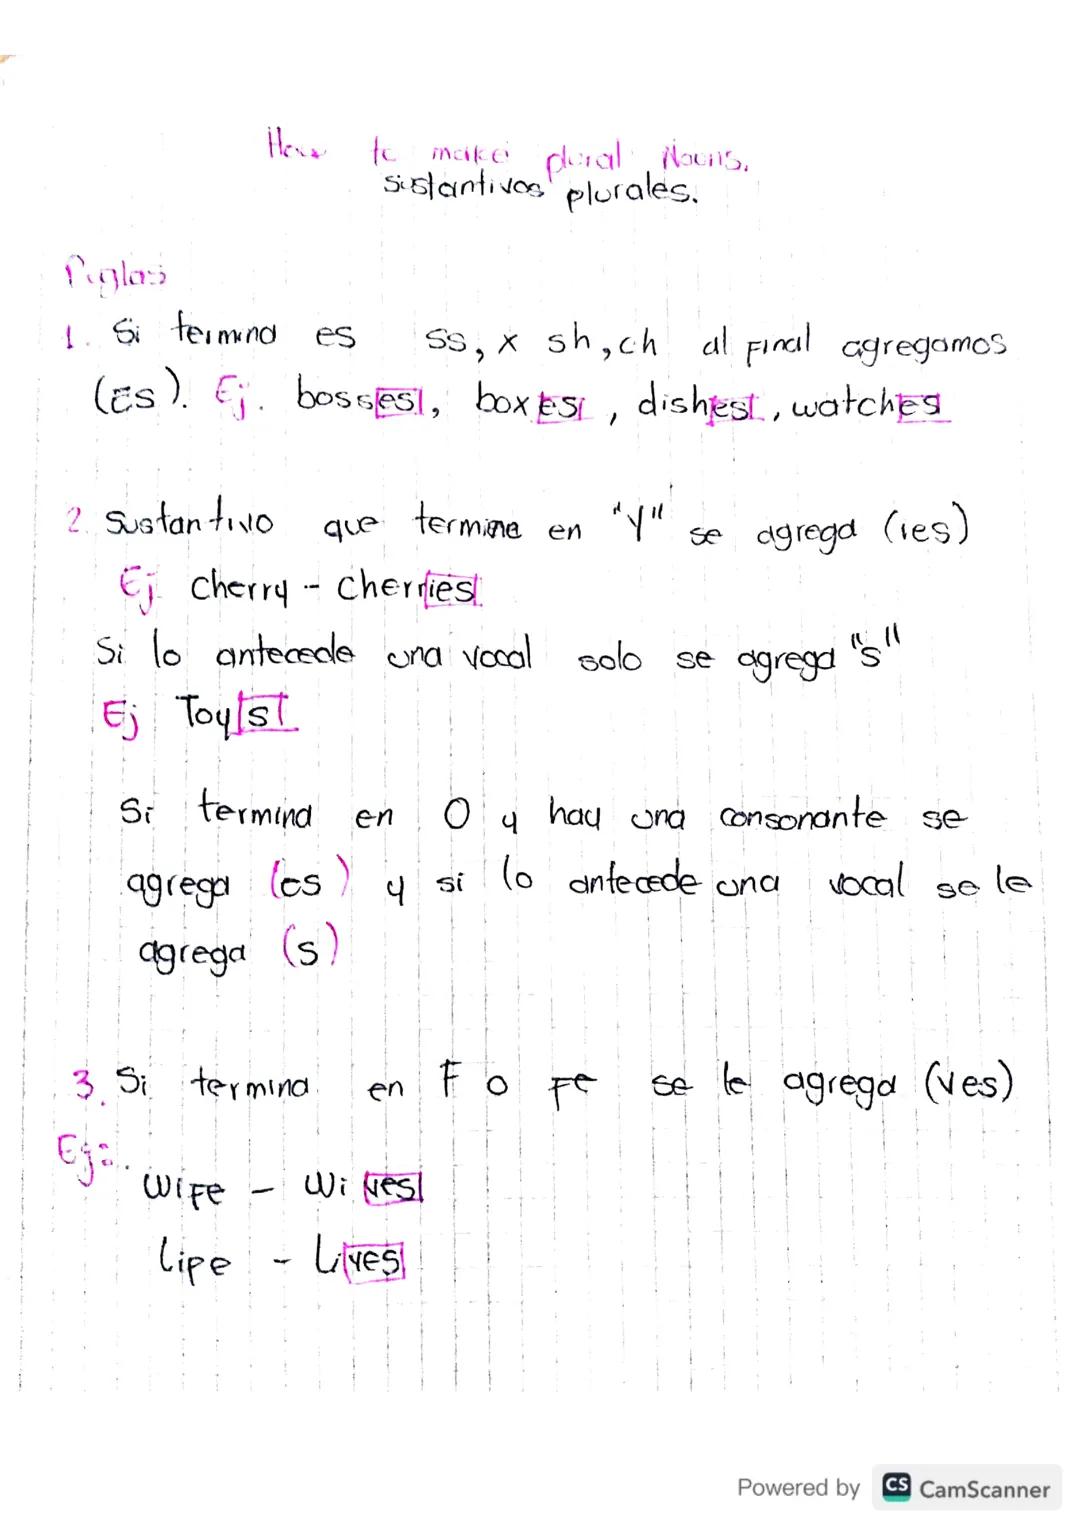 How to make plural Nouns.
sustantivos plurales.
Reglas
1. Si termina es ss, x sh, ch al final agregamos
(Es). Ej. bosses, boxes, dishes, watches
2. Sustantivo que termina en "Y" se agrega (ies)
Ej cherry - cherries
Si lo antecede una vocal solo se agrega "s"
Ej Toys
Si termina en O y hay una consonante se
agrega (es) y si lo antecede una vocal se le
agrega (s)
3. Si termina en F o Fe se le agrega (ves)
Ej:
Wife - Wives
Life - Lives
Powered by CS CamScanner